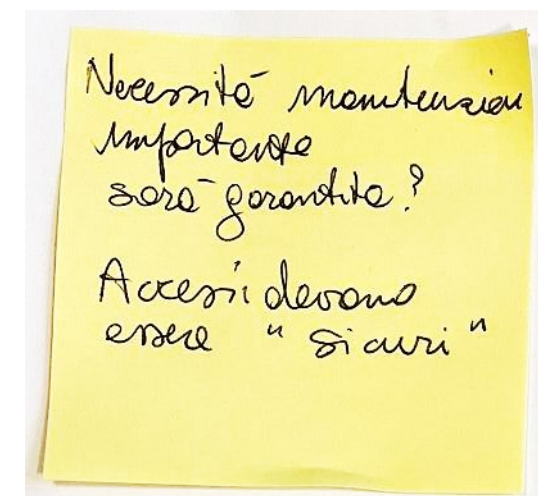 Necessità manutenzion
importante
sarà garantita?
Accessi devono
essere "sicuri"